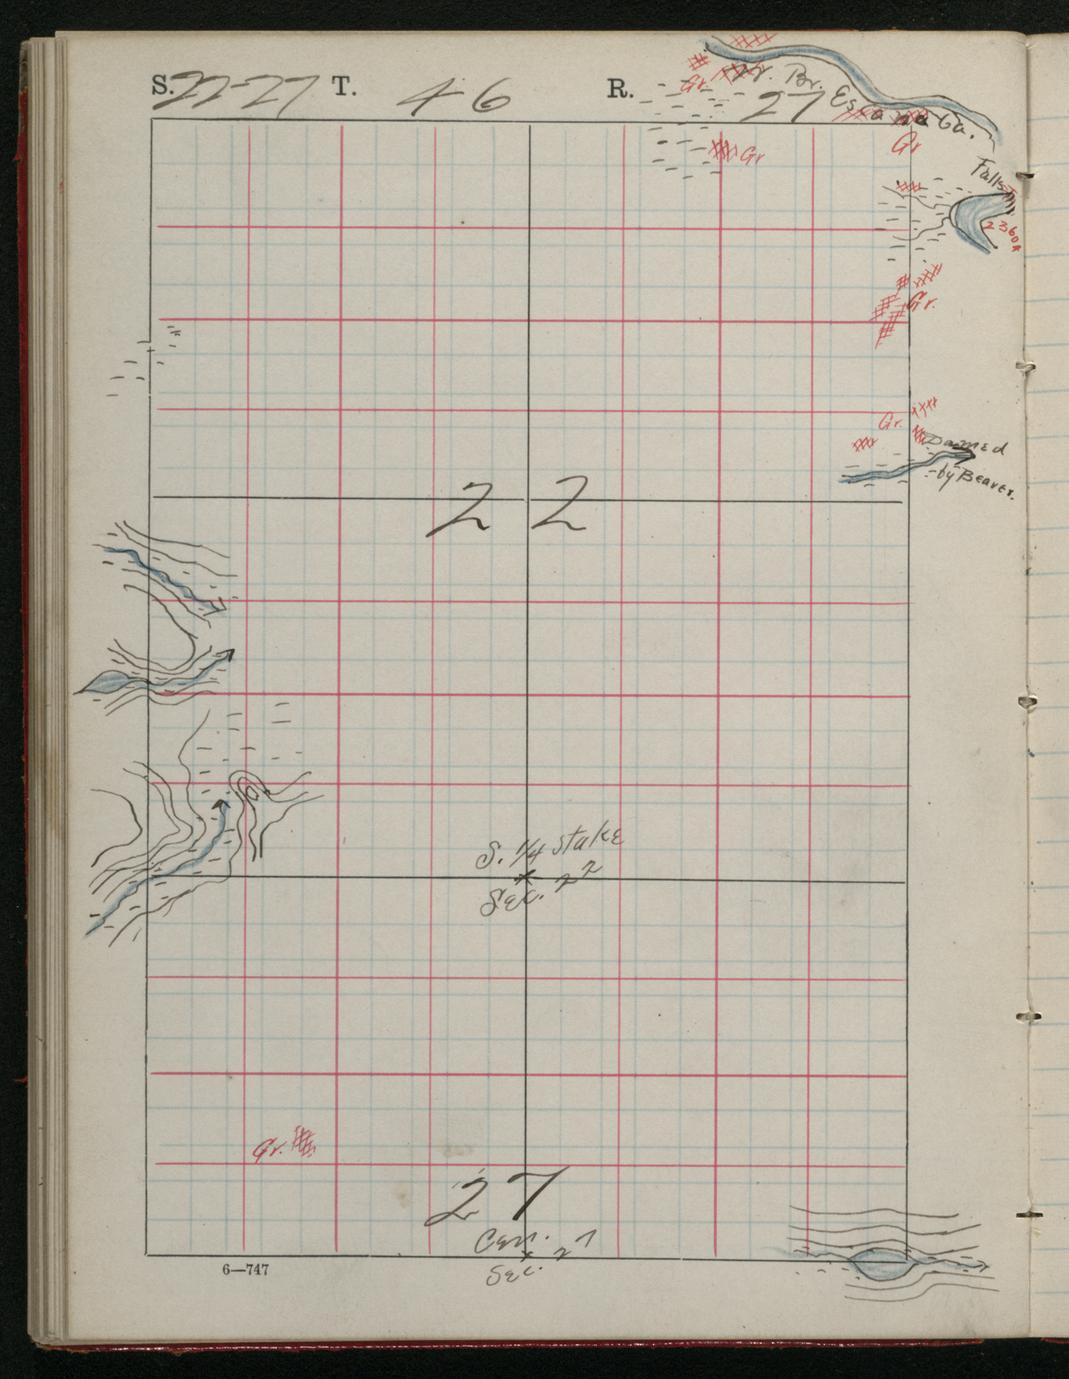 S. 22-27 T. 46 R. 27
Br. Escanaba.
Gr
Gr
Gr
Falls
Gr.
Gr.
Damed
by Beaver.
22
S. 1/4 stake
Sec. 22
Gr.
27
Cen.
Sec. 27
6—747